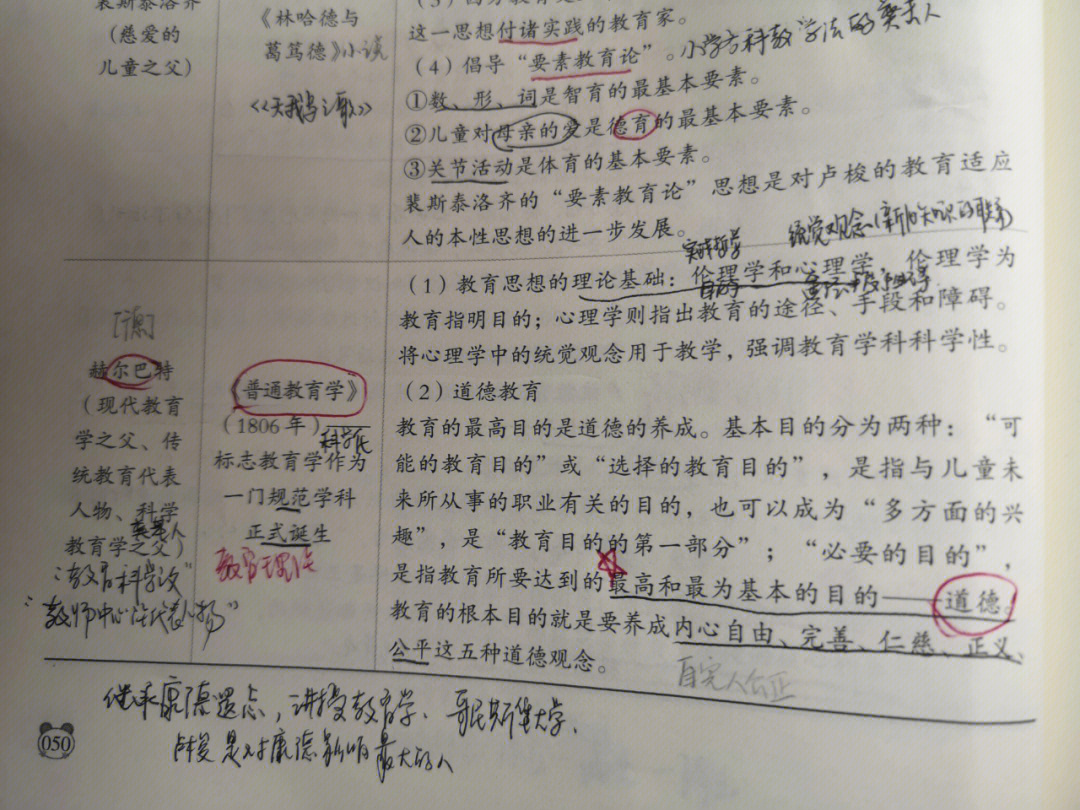 裴斯泰洛齐
（慈爱的
儿童之父）
《林哈德与
葛笃德》小说
《天鹅之歌》
这一思想付诸实践的教育家。
（4）倡导“要素教育论”。小学各科教学法的奠基人
①数、形、词是智育的最基本要素。
②儿童对母亲的爱是德育的最基本要素。
③关节活动是体育的基本要素。
裴斯泰洛齐的“要素教育论”思想是对卢梭的教育适应
人的本性思想的进一步发展。
实践哲学
统觉观念（新旧知识的联系）
[德]
赫尔巴特
（现代教育
学之父、传
统教育代表
人物、科学
奠基人
教育学之父）
“教育科学论”
“教师中心论代表人物”
《普通教育学》
（1806 年）
科学化
标志教育学作为
一门规范学科
正式诞生
（1）教育思想的理论基础：伦理学和心理学，伦理学为
教育指明目的；心理学则指出教育的途径、手段和障碍。
将心理学中的统觉观念用于教学，强调教育学科科学性。
（2）道德教育
教育的最高目的是道德的养成。基本目的分为两种：“可
能的教育目的”或“选择的教育目的”，是指与儿童未
来所从事的职业有关的目的，也可以成为“多方面的兴
趣”，是“教育目的的第一部分”；“必要的目的”，
是指教育所要达到的最高和最为基本的目的——道德。
教育的根本目的就是要养成内心自由、完善、仁慈、正义、
公平这五种道德观念。
自完人公正
继承康德遗志，讲授教育学、哥尼斯堡大学、
卢梭是对康德影响最大的人
050